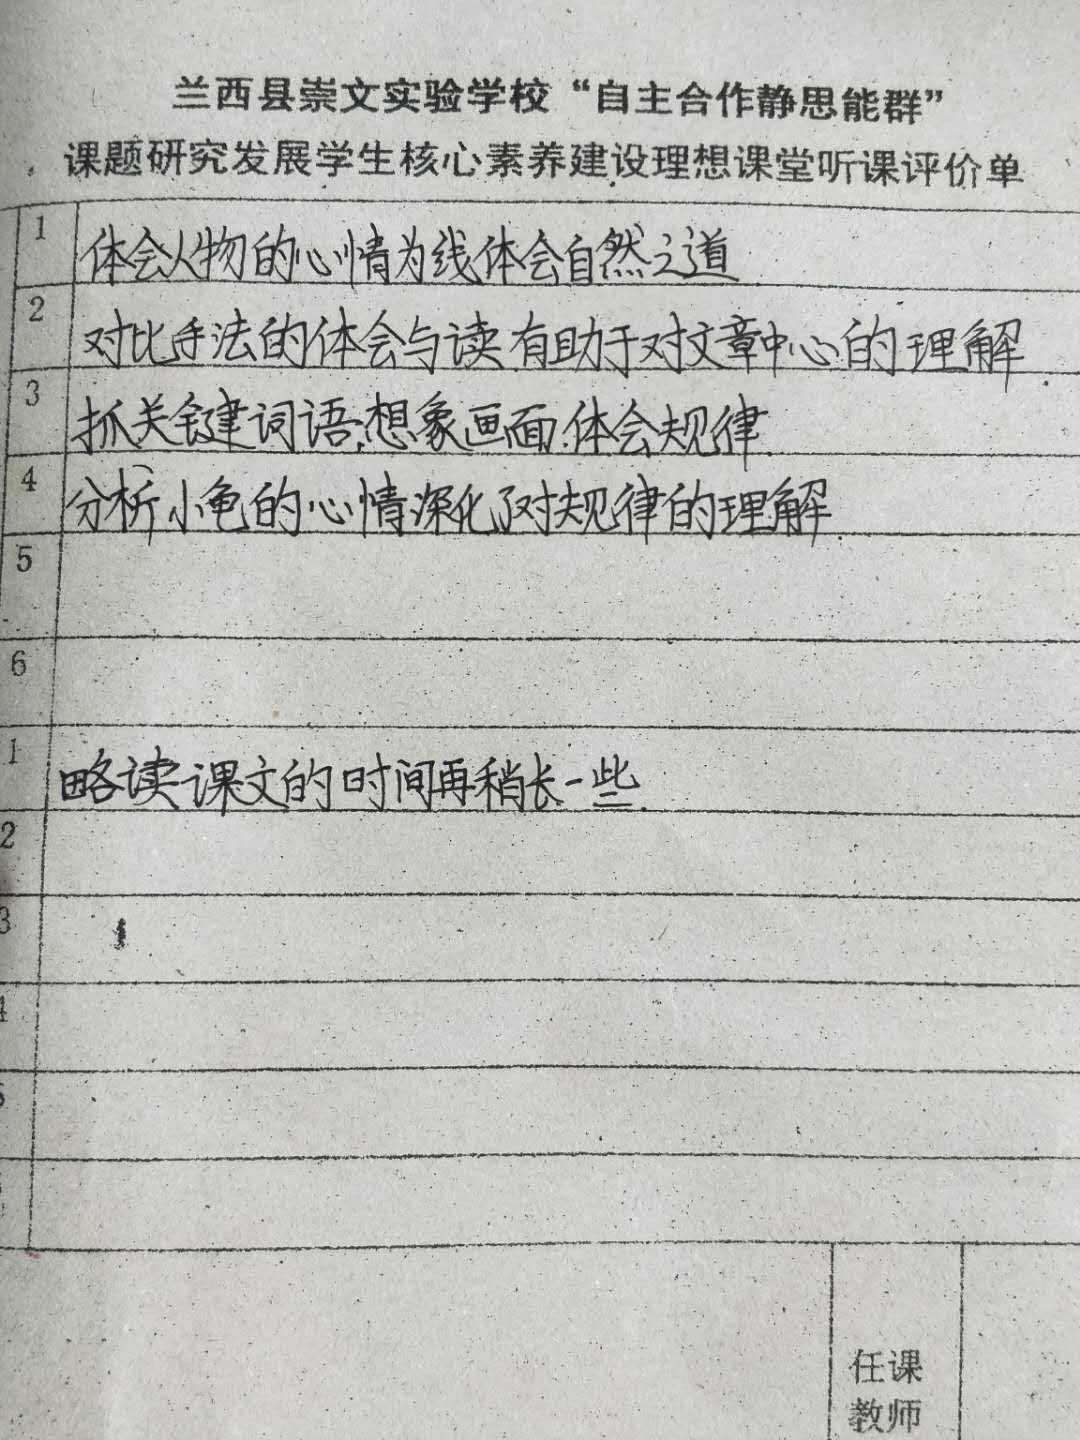 兰西县崇文实验学校“自主合作静思能群”
课题研究发展学生核心素养建设理想课堂听课评价单
1 体会人物的心情为线体会自然之道
2 对比手法的体会与读有助于对文章中心的理解.
3 抓关键词语,想象画面.体会规律.
4 分析小龟的心情深化了对规律的理解.
5
6
1 略读课文的时间再稍长一些.
2
3
4
5
任课
教师